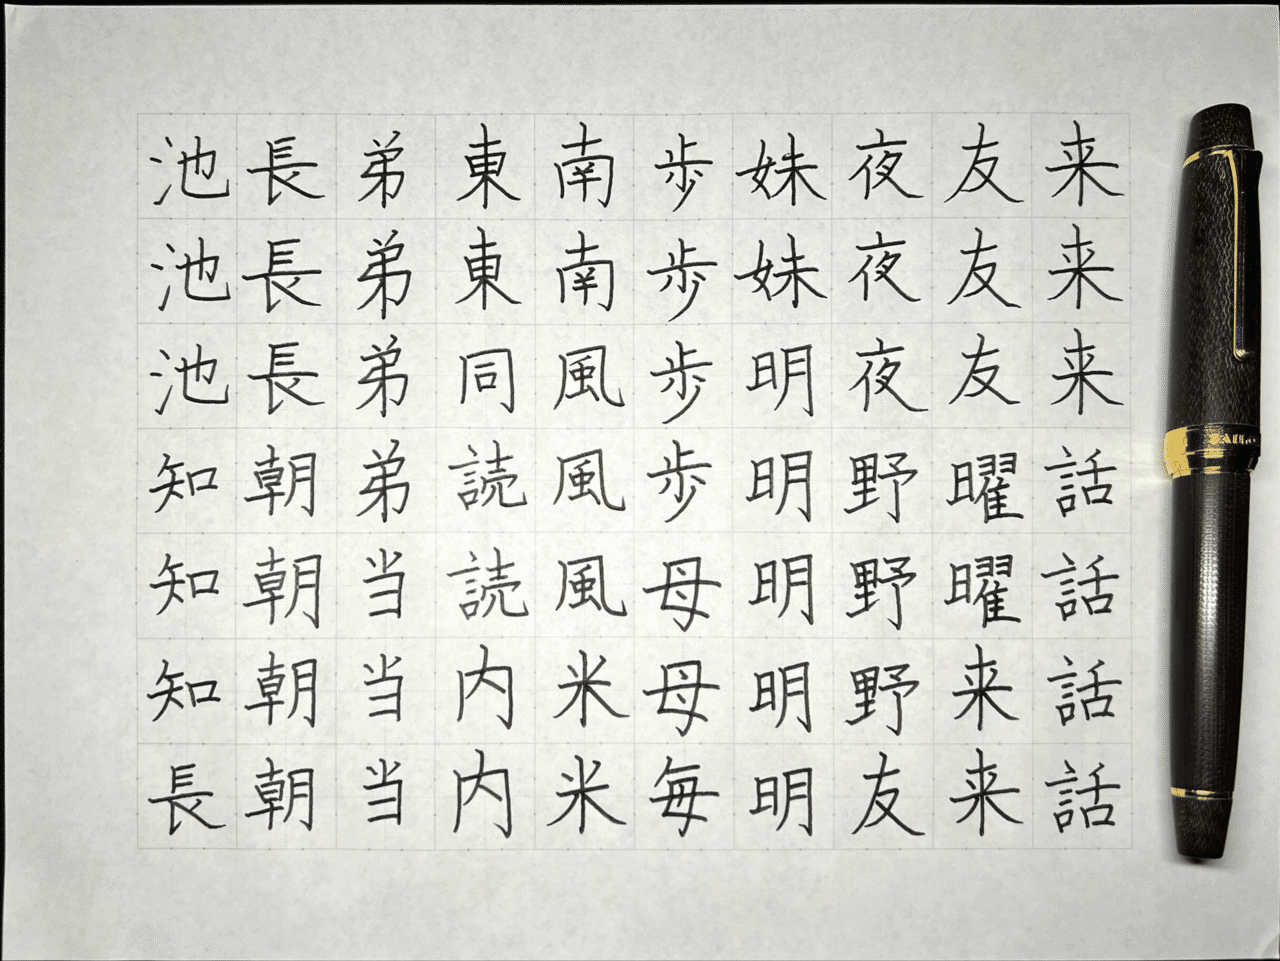 池池池知知知長
長長長朝朝朝朝
弟弟弟弟当当当
東東同読読内内
南南風風風米米
歩歩歩歩母母毎
妹妹明明明明明
夜夜夜野野野友
友友友曜曜来来
来来来話話話話